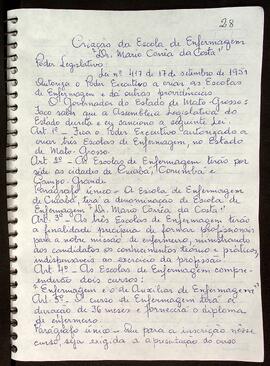 28
Criação da Escola de Enfermagem
"Dr. Mario Corrêa da Costa"
Poder Legislativo
Lei nº 417 de 17 de setembro de 1951
Autoriza o Poder Executivo a criar as Escolas
de Enfermagem e da outras providências
O Governador do Estado de Mato-Grosso:
Faço saber que a Assembleia Legislativa do
Estado decreta e eu sanciono a seguinte Lei:
Art 1º - Fica o Poder Executivo autorizado a
criar três Escolas de Enfermagem, no Estado
de Mato-Grosso.
Art 2º - As Escolas de Enfermagem terão por
sede as cidades de Cuiabá, Corumbá e
Campo-Grande
Parágrafo único - A Escola de Enfermagem
de Cuiabá, terá a denominação de Escola de
Enfermagem "Dr. Mario Corrêa da Costa".
Art 3º - As três Escolas de Enfermagem terão
a finalidade precípua de formar profissionais
para a nobre missão de enfermeiro, ministrando
aos candidatos os conhecimentos teóricos e práticos,
indispensáveis ao exercício da profissão:
Art 4º - As Escolas de Enfermagem compre-
enderão dois cursos:
"Enfermagem e o de Auxiliar de Enfermagem"
Art. 5º - O curso de Enfermagem terá a
duração de 36 meses e fornecerá o diploma
de enfermeiro.
Parágrafo único - Que para a inscrição nesse
curso, seja exigida a apresentação do curso